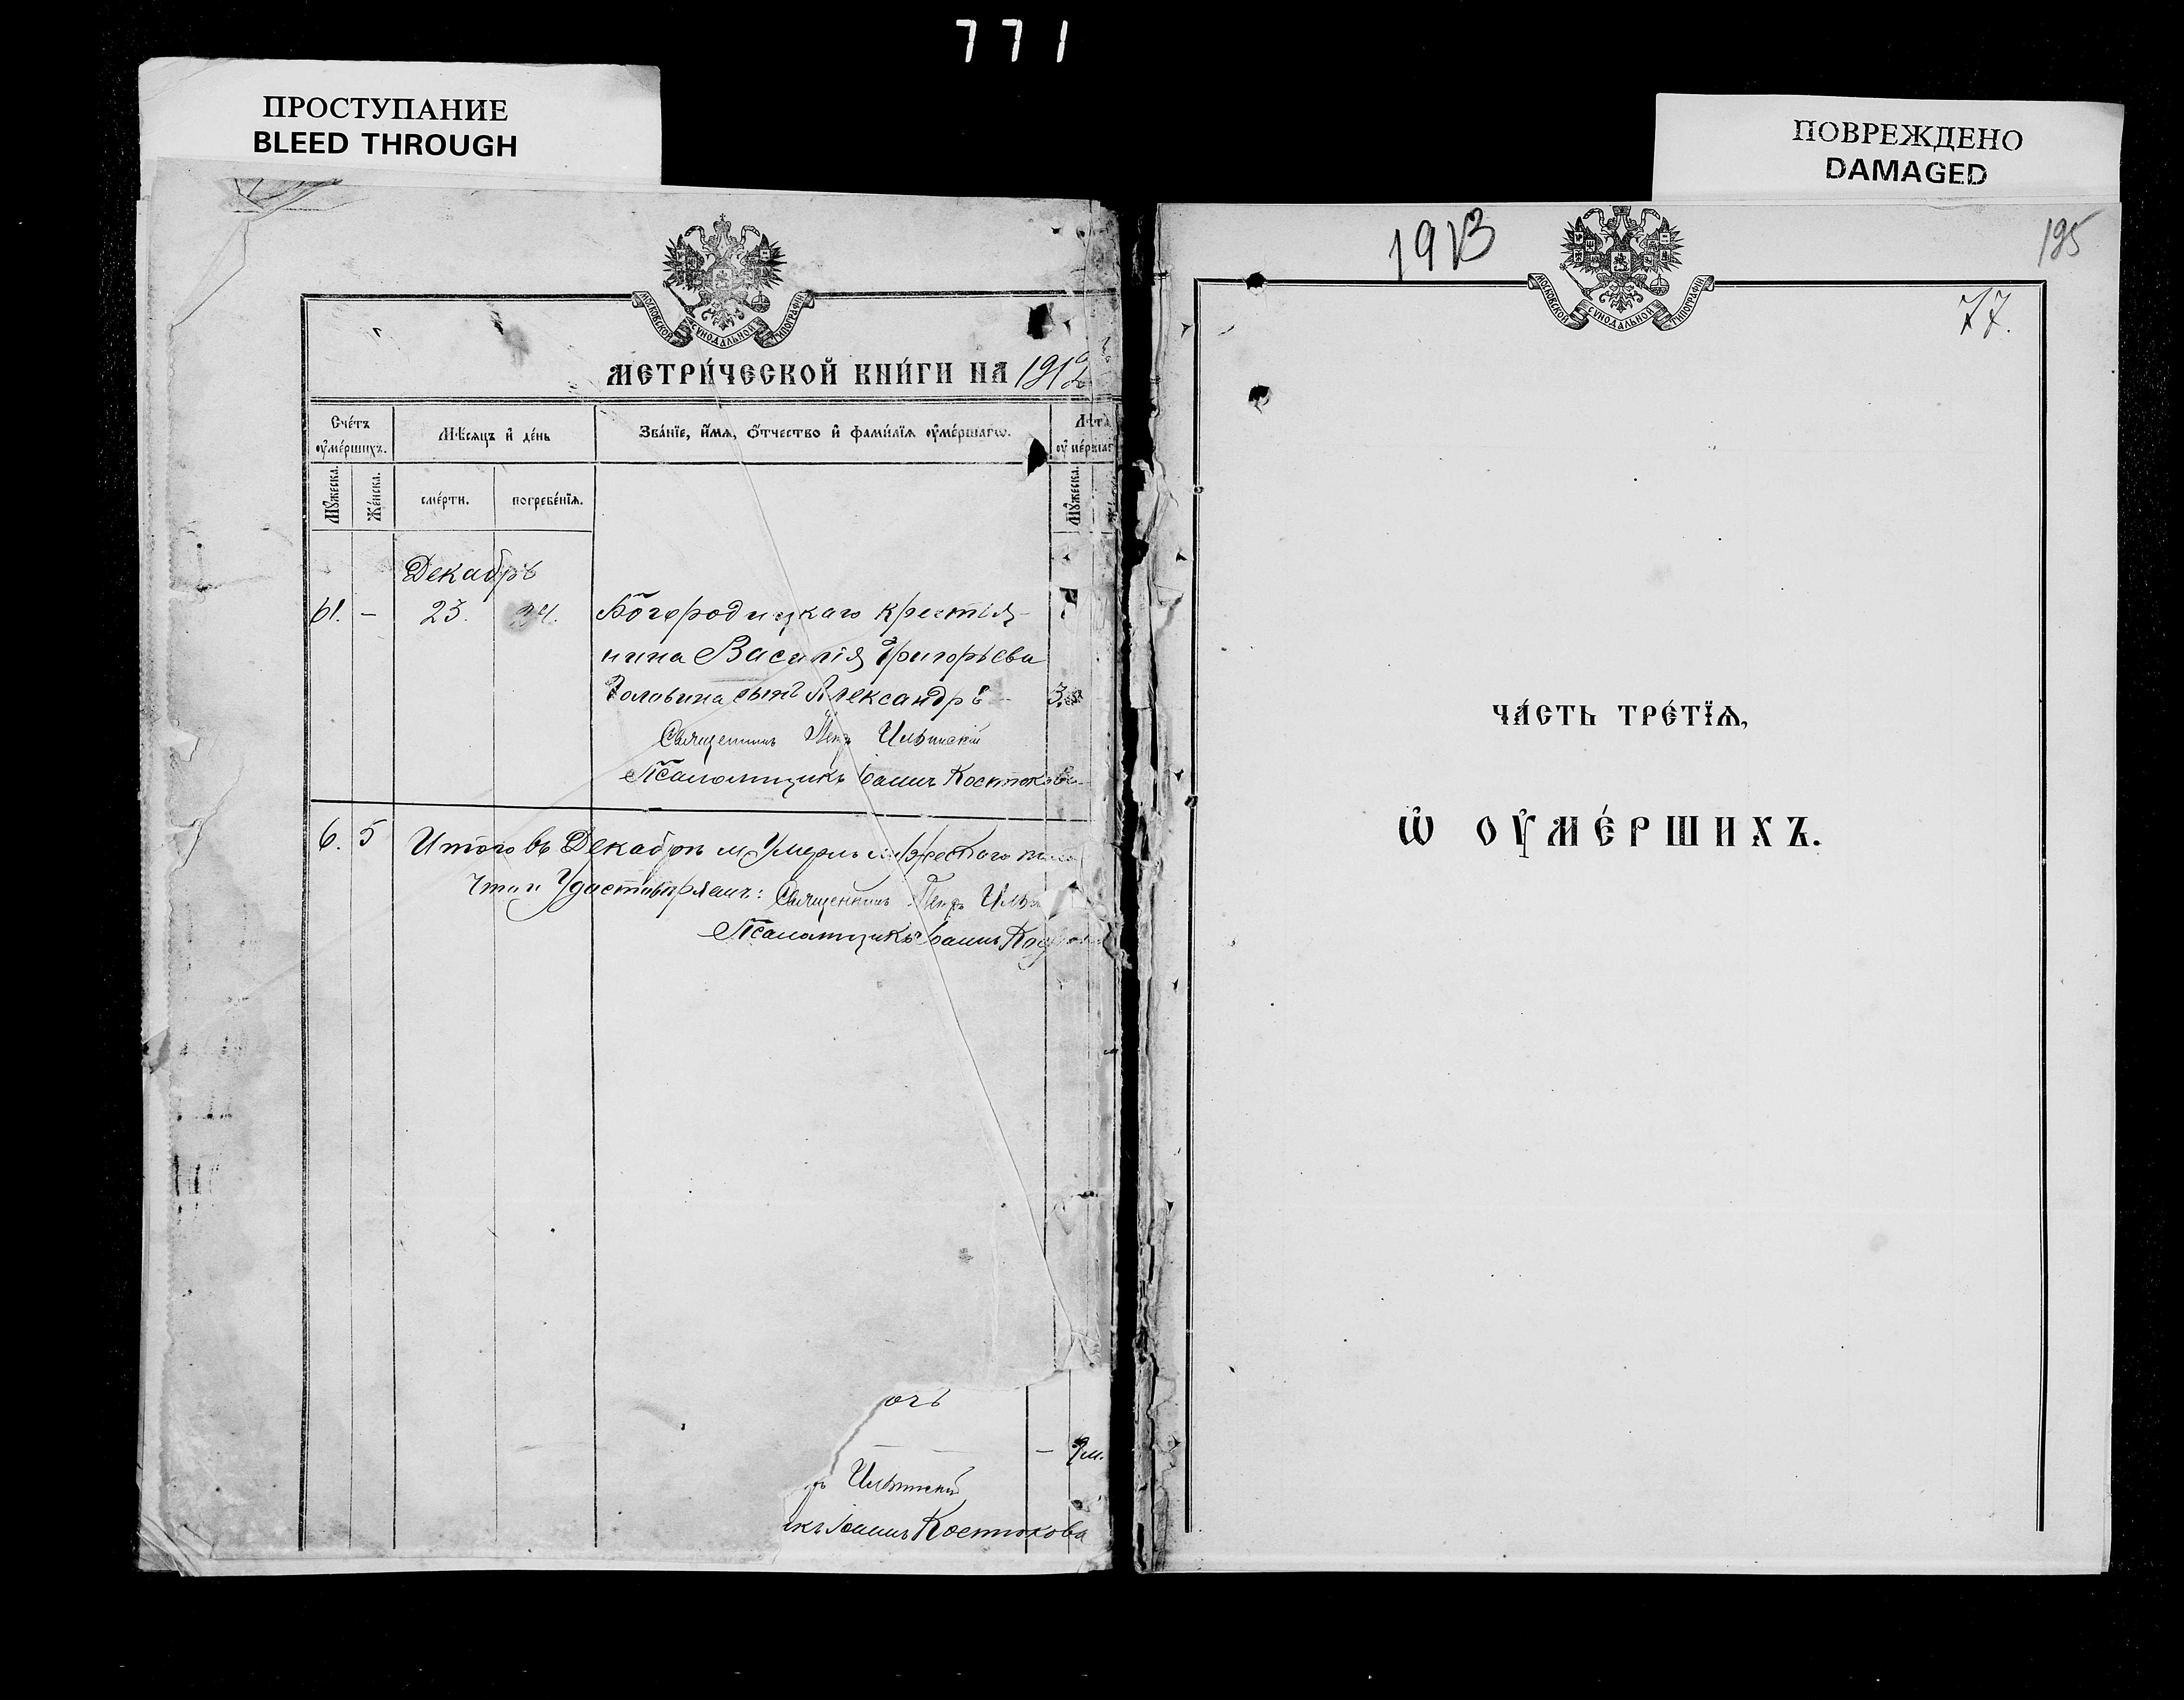 771
ПРОСТУПАНИЕ
BLEED THROUGH
ПОВРЕЖДЕНО
DAMAGED
МОСКОВСКОЙ СѴНОДАЛЬНОЙ ТИПОГРАФІИ
МЕТРИ́ЧЕСКОЙ КНИ́ГИ НА 1912
Сче́тъ ᲂу҆ме́ршихъ.
Мѣ́сяцъ и҆ де́нь
Зва́нїе, и҆́мѧ, ѻ҆́тчество и҆ фами́лїѧ ᲂу҆ме́ршагѡ.
Лѣта
Мꙋ́жеска.
Же́нска.
сме́рти.
погребе́нїѧ.
Мꙋ́жеска.
Декабрь
61. – 23. 24. Богородицкаго крестія-
нина Василія Григорьева
Головина сынъ Александръ
Священникъ Петръ Ильинскій
Псаломщикъ Іоаннъ Костюкова
6. 5 Итого въ Декабрѣ м. Умерло мужескаго
Священникъ Петръ
Псаломщикъ Іоаннъ
очь
– 9 м.
ръ Ильинскій
икъ Іоаннъ Костюкова
1913
195
МОСКОВСКОЙ СѴНОДАЛЬНОЙ ТИПОГРАФІИ
77.
ЧА́СТЬ ТРЕ́ТЇѦ,
Ѡ҆ ОУ҆МЕ́РШИХЪ.